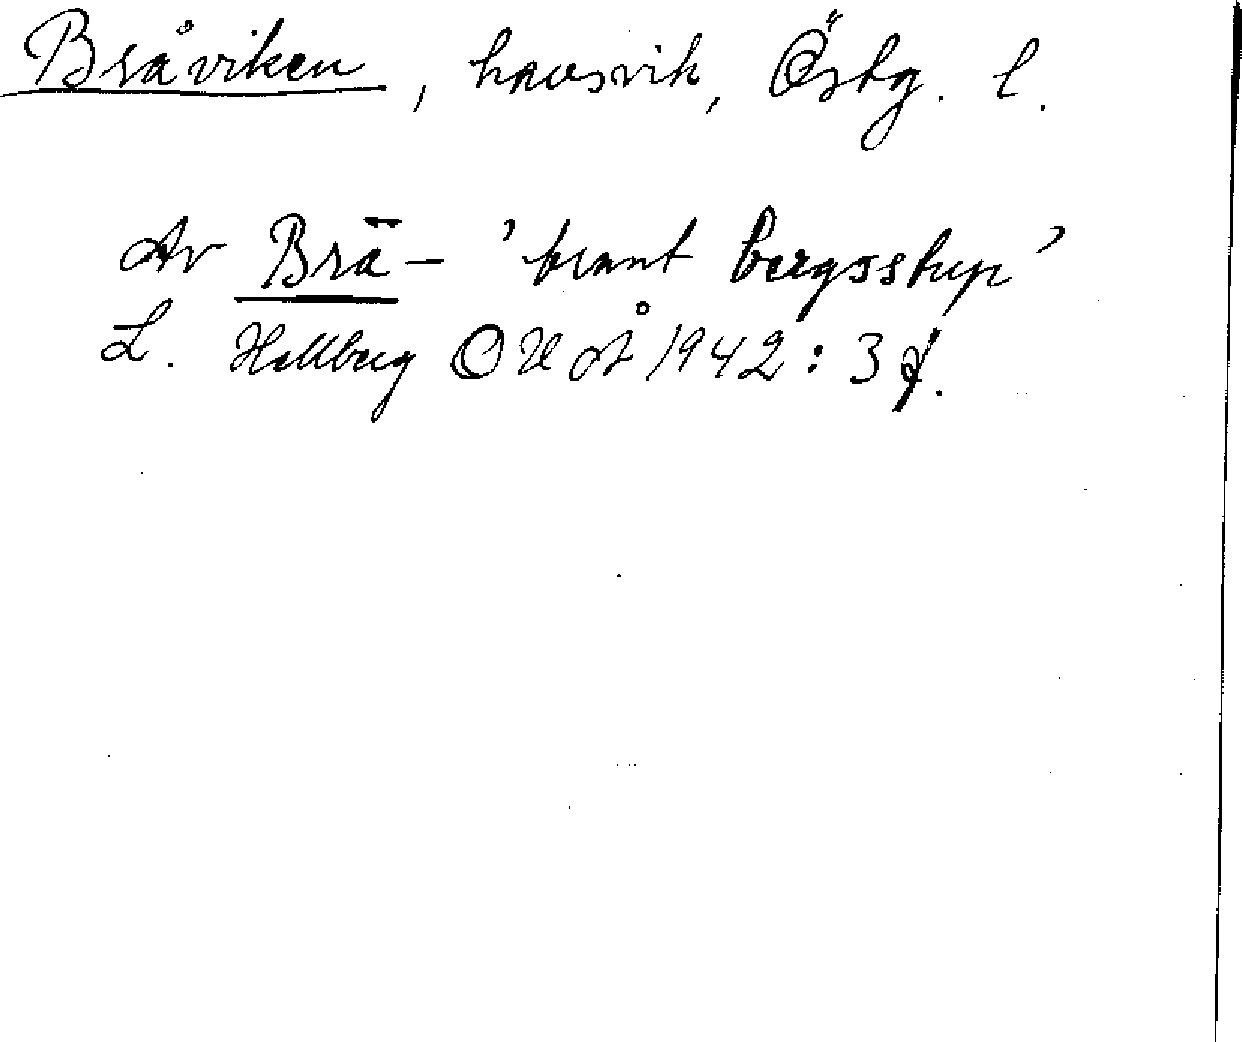 Bråviken, havsvik, Östg. l.
Av Brä- 'brant bergsstup'
L. Hellberg OUÅ 1942: 3 f.